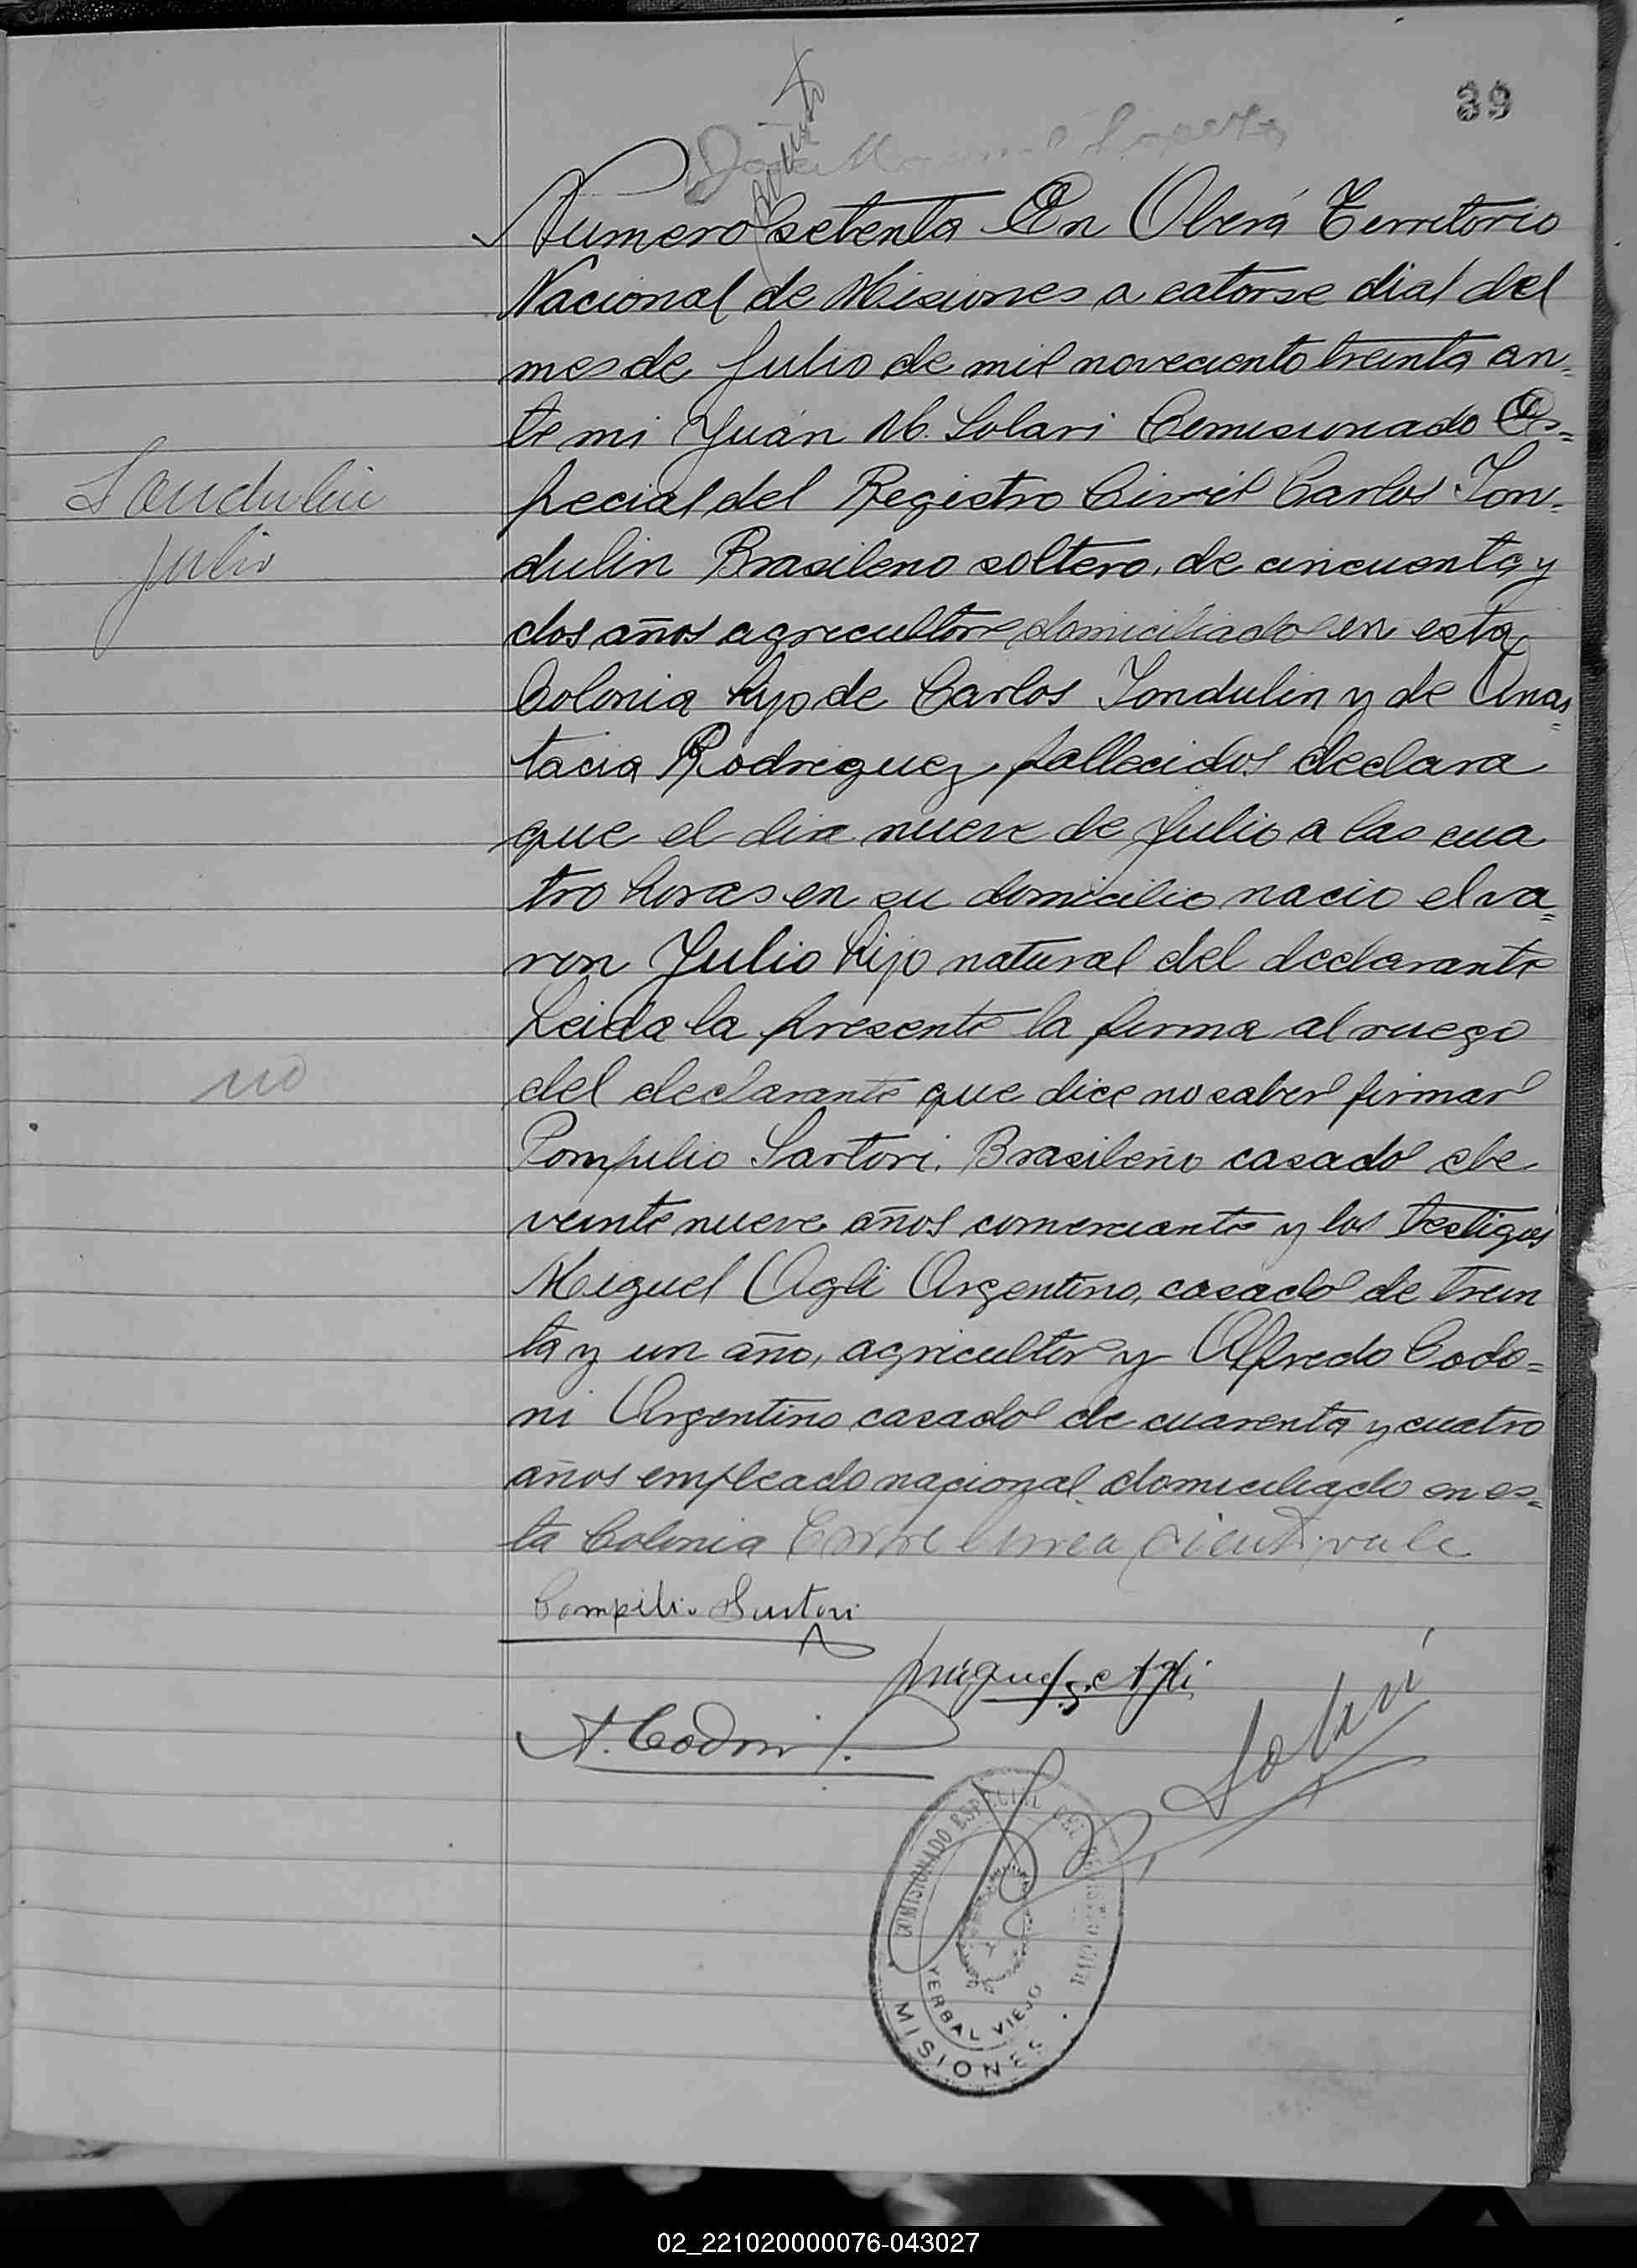 39
Numero setenta En Oberá Territorio
Nacional de Misiones a catorse dias del
mes de Julio de mil noveciento treinta an-
te mi Juán M. Solari Comisionado Es=
Sondulin
pecial del Registro Civil Carlos Son-
Julio
dulin Brasileno soltero, de cincuenta y
dos años agricultor domiciliado en esta
Colonia hijo de Carlos Sondulin y de Anas=
tacia Rodriguez fallecidos declara
que el dia nueve de Julio a las cua
tro horas en su domicilio nacio el va=
ron Julio hijo natural del declarante
Leida la presente la firma al ruego
no
del declarante que dice no saber firmar
Pompilio Sartori. Brasileño casado de
veinte nueve años comerciante y los testigos
Miguel Agli Argentino, casado de trein
ta y un año, agricultor y Alfredo Codo=
ni Argentino casado de cuarenta y cuatro
años empleado nacional domiciliado en es=
ta Colonia Entre linea vale
Pompilio Sartori
Miguel S. Agli
A. Codoni
Solari
COMISIONADO ESPECIAL DEL REGISTRO CIVIL
YERBAL VIEJO
MISIONES
02_221020000076-043027